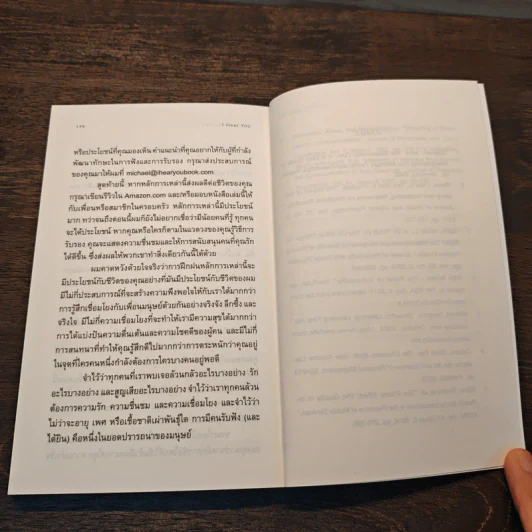 I Hear You
หรือประโยชน์ที่คุณมองเห็น คำแนะนำที่คุณอยากให้กับผู้ที่กำลัง
พัฒนาทักษะในการฟังและการรับรอง กรุณาส่งประสบการณ์
ของคุณมาให้ผมที่ michael@ihearyoubook.com
สุดท้ายนี้ หากหลักการเหล่านี้ส่งผลดีต่อชีวิตของคุณ
กรุณาเขียนรีวิวใน Amazon.com และ/หรือมอบหนังสือเล่มนี้ให้
กับเพื่อนหรือสมาชิกในครอบครัว หลักการเหล่านี้มีประโยชน์
มาก ทว่าจนถึงตอนนี้ผมก็ยังไม่อยากเชื่อว่ามีน้อยคนที่รู้ ทุกคน
จะได้ประโยชน์ หากคุณหรือใครก็ตามในแวดวงของคุณรู้วิธีการ
รับรอง คุณจะแสดงความชื่นชมและให้การสนับสนุนคนที่คุณรัก
ได้ดีขึ้น ซึ่งส่งผลให้พวกเขาทำสิ่งเดียวกันนี้ได้ด้วย
ผมคาดหวังด้วยใจจริงว่าการฝึกฝนหลักการเหล่านี้จะ
มีประโยชน์กับชีวิตของคุณอย่างที่มันมีประโยชน์กับชีวิตของผม
มีไม่กี่ประสบการณ์ที่จะสร้างความพึงพอใจให้กับเราได้มากกว่า
การรู้สึกเชื่อมโยงกับเพื่อนมนุษย์ด้วยกันอย่างจริงจัง ลึกซึ้ง และ
จริงใจ มีไม่กี่ความเชื่อมโยงที่จะทำให้เรามีความสุขได้มากกว่า
การได้แบ่งปันความตื่นเต้นและความโชคดีของผู้คน และมีไม่กี่
การสนทนาที่ทำให้คุณรู้สึกดีไปมากกว่าการตระหนักว่าคุณอยู่
ในจุดที่ใครคนหนึ่งกำลังต้องการใครบางคนอยู่พอดี
จำไว้ว่าทุกคนที่เราพบเจอล้วนกลัวอะไรบางอย่าง รัก
อะไรบางอย่าง และสูญเสียอะไรบางอย่าง จำไว้ว่าเราทุกคนล้วน
ต้องการความรัก ความชื่นชม และความเชื่อมโยง และจำไว้ว่า
ไม่ว่าจะอายุ เพศ หรือเชื้อชาติเผ่าพันธุ์ใด การมีคนรับฟัง (และ
ได้ยิน) คือหนึ่งในยอดปรารถนาของมนุษย์